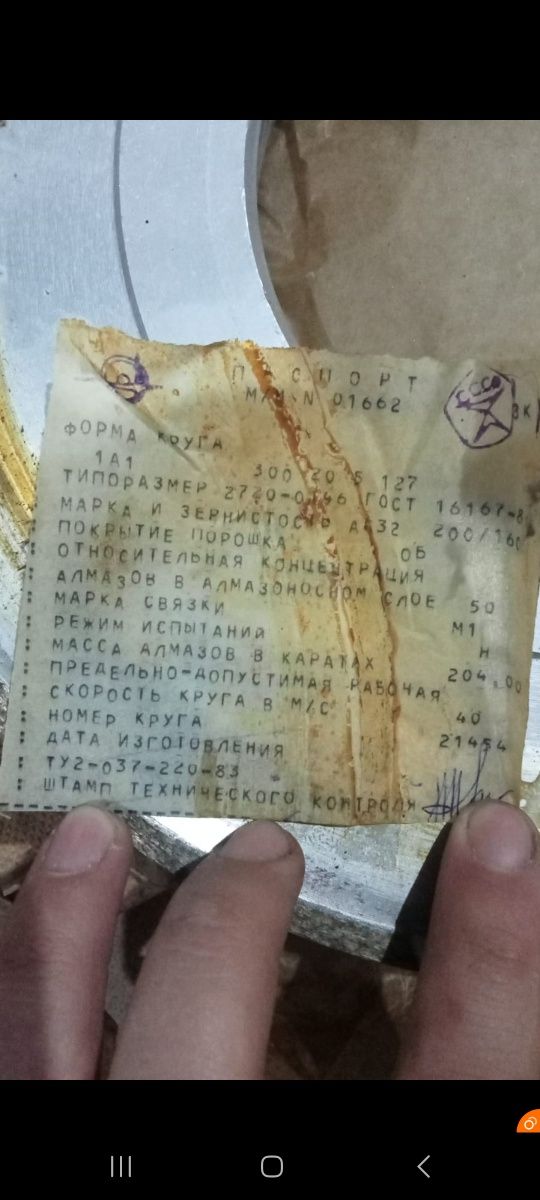 ПАСПОРТ
М/И N 01662
СССР
ЗК
ФОРМА КРУГА
1А1 300 20 5 127
ТИПОРАЗМЕР 2720-0146 ГОСТ 16167-8
МАРКА И ЗЕРНИСТОСТЬ АС32 200/160
ПОКРЫТИЕ ПОРОШКА ОБ
ОТНОСИТЕЛЬНАЯ КОНЦЕНТРАЦИЯ
АЛМАЗОВ В АЛМАЗОНОСНОМ СЛОЕ 50
МАРКА СВЯЗКИ М1
РЕЖИМ ИСПЫТАНИЙ Н
МАССА АЛМАЗОВ В КАРАТАХ 204.00
ПРЕДЕЛЬНО-ДОПУСТИМАЯ РАБОЧАЯ
СКОРОСТЬ КРУГА В М/С 40
НОМЕР КРУГА 21454
ДАТА ИЗГОТОВЛЕНИЯ
ТУ2-037-220-83
ШТАМП ТЕХНИЧЕСКОГО КОНТРОЛЯ